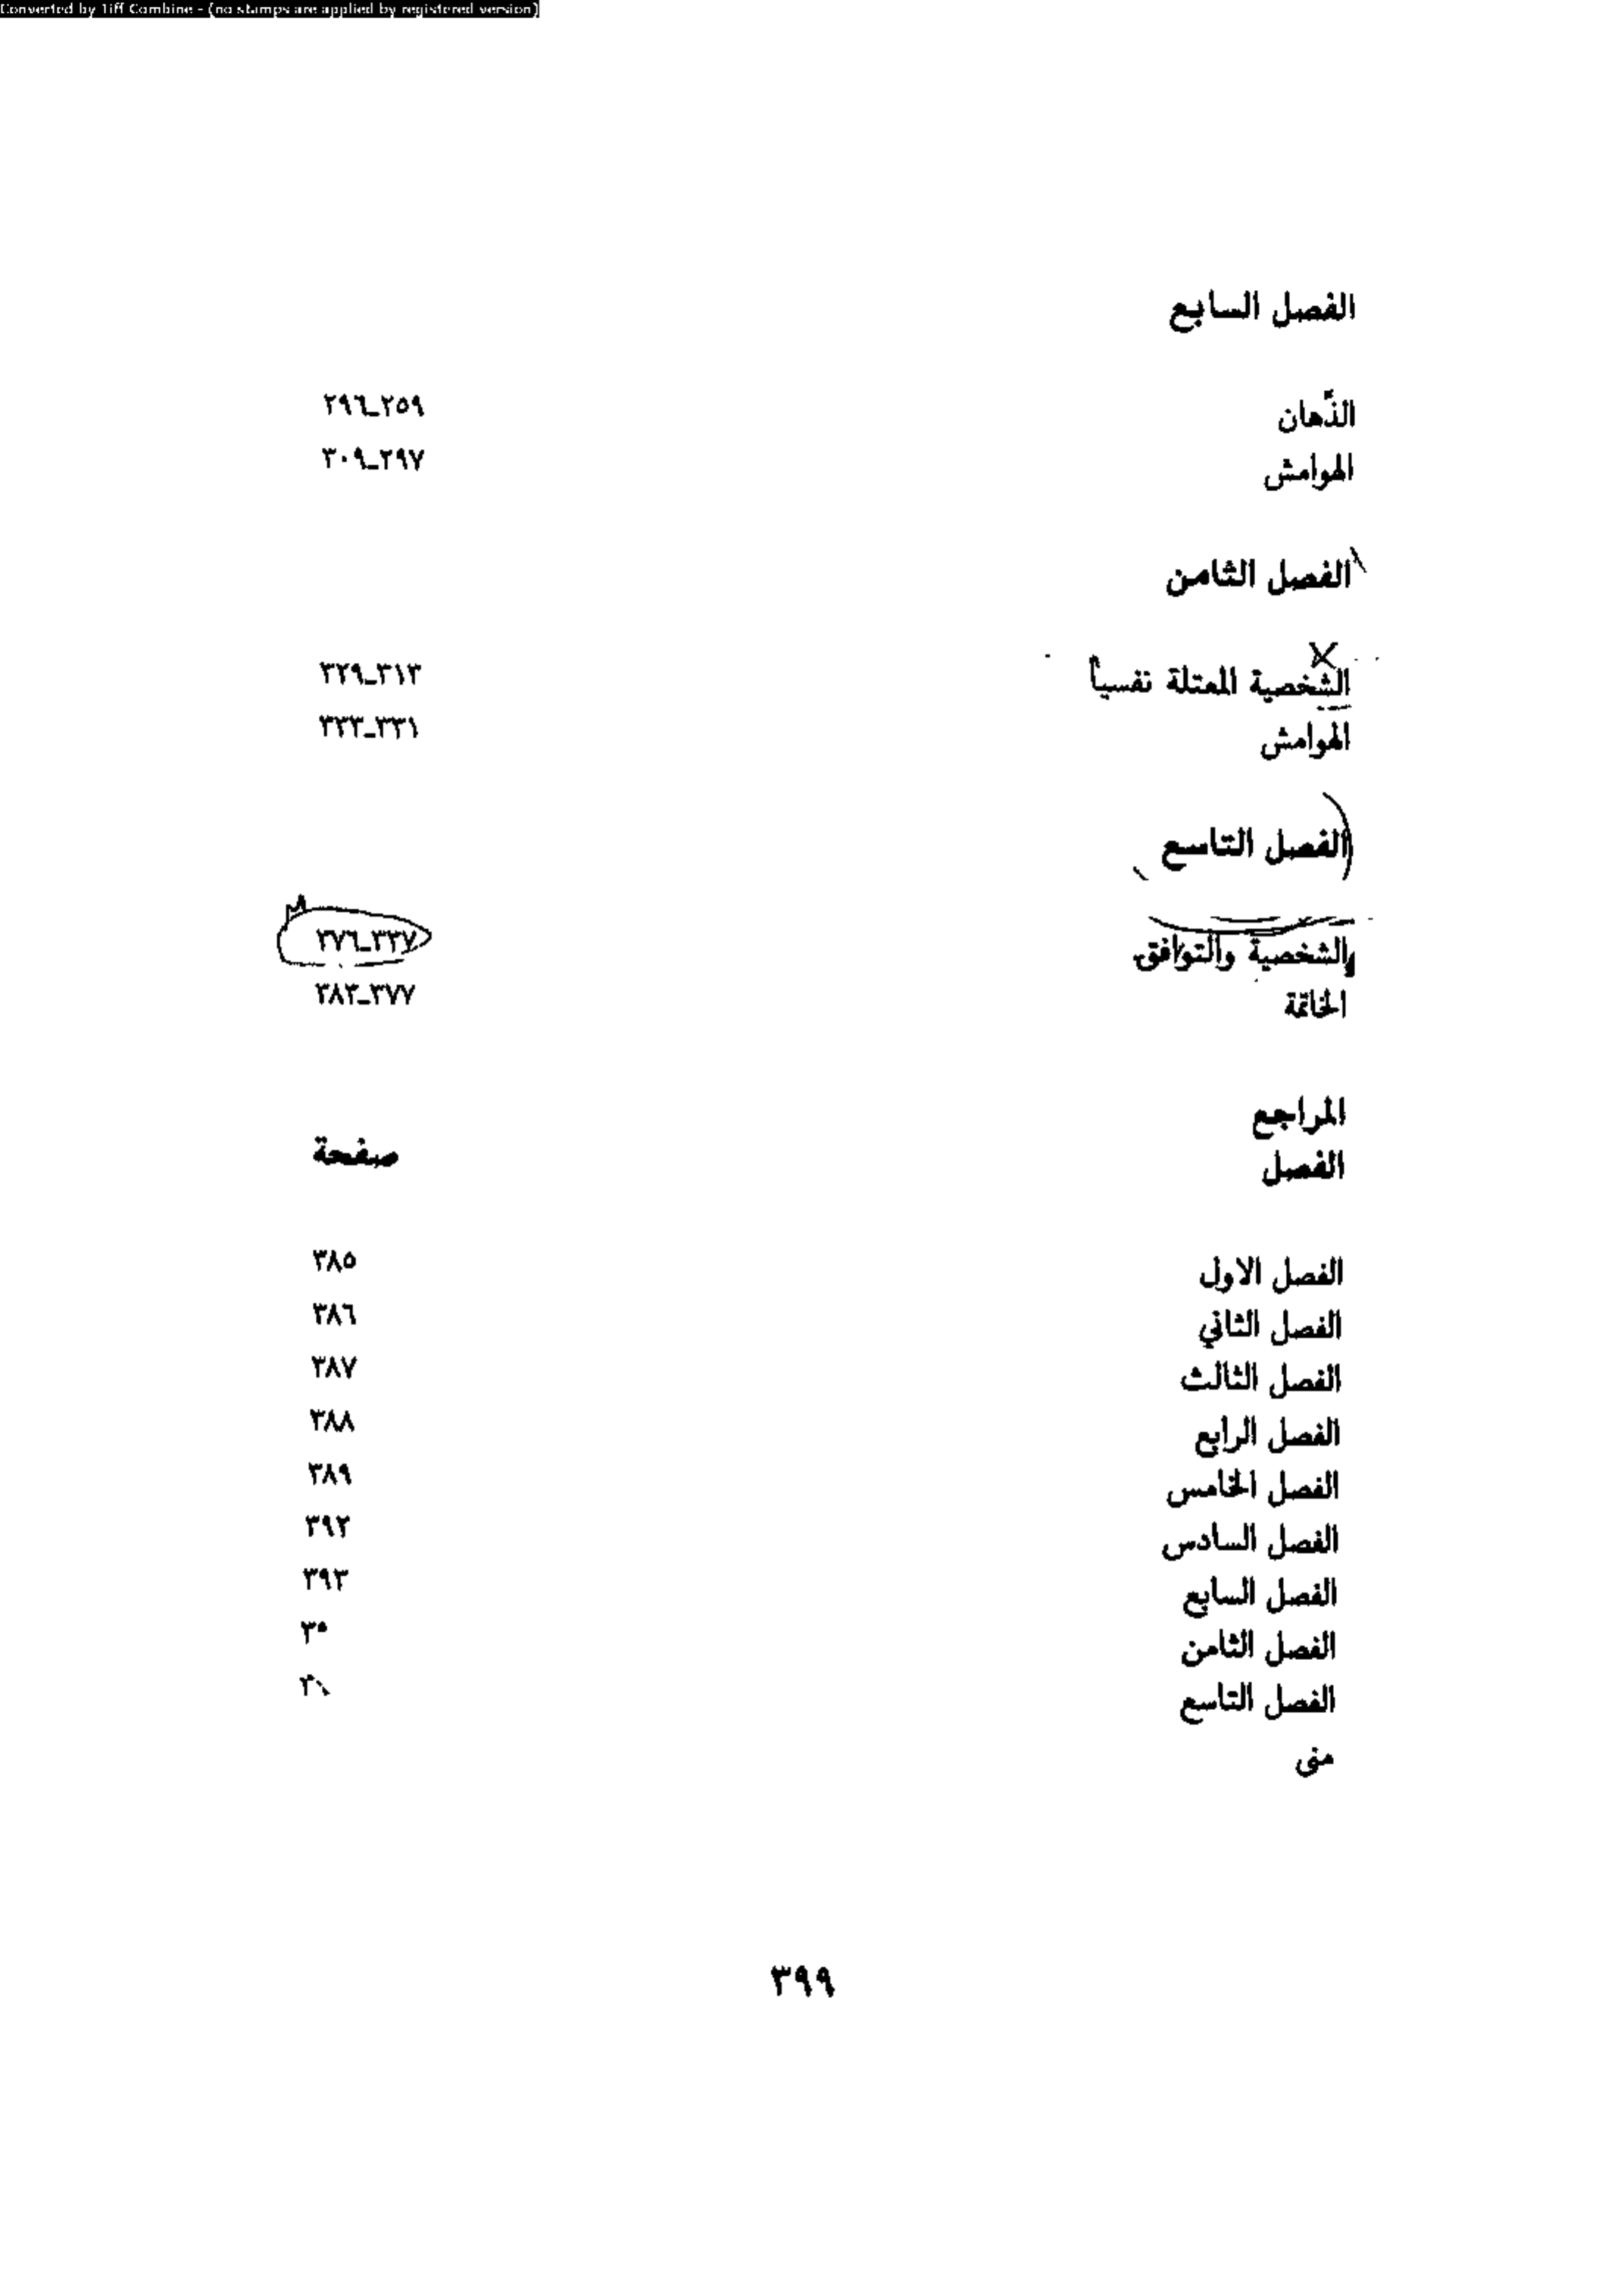 Converted by Tiff Combine - (no stamps are applied by registered version)
الفصل السابع
الذُهان ٢٥٩ـ٢٩٦
الهوامش ٢٩٧ـ٣٠٩
الفصل الثامن
الشخصية المعتلة نفسياً ٣١٣ـ٣٢٩
الهوامش ٣٣١ـ٣٣٣
الفصل التاسع
الشخصية والتوافق ٣٣٧ـ٣٧٦
الخاتمة ٣٧٧ـ٣٨٣
المراجع
الفصل صفحة
الفصل الاول ٣٨٥
الفصل الثاني ٣٨٦
الفصل الثالث ٣٨٧
الفصل الرابع ٣٨٨
الفصل الخامس ٣٨٩
الفصل السادس ٣٩٢
الفصل السابع ٣٩٣
الفصل الثامن
الفصل التاسع
منى
٣٩٩